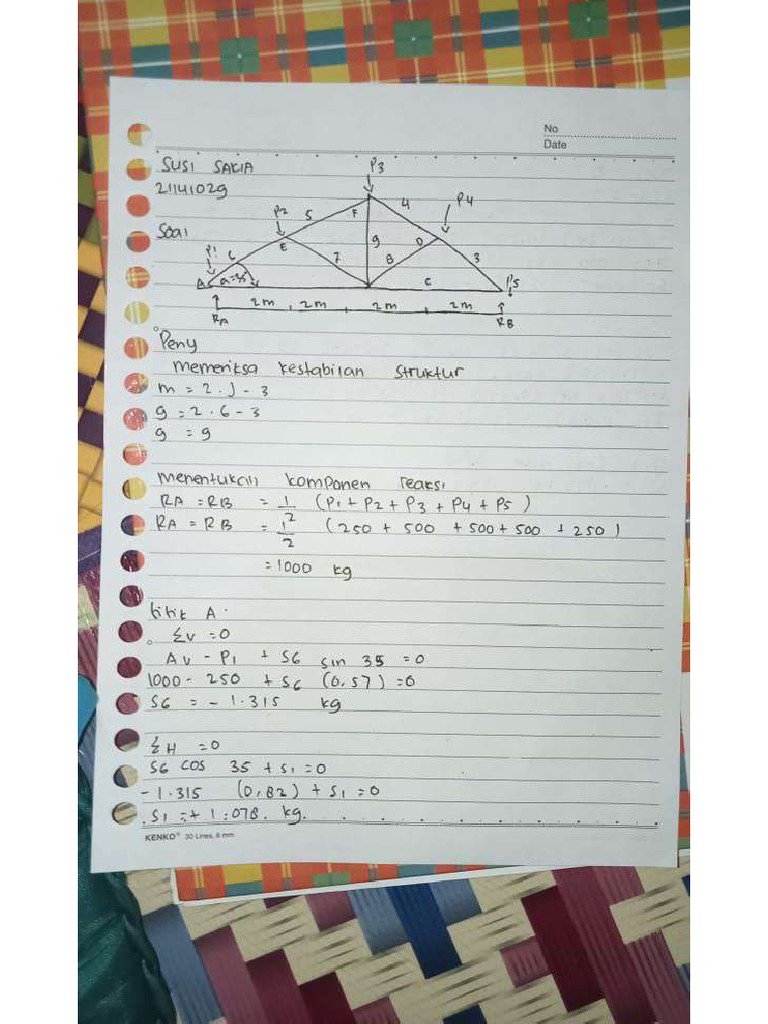 No
Date
SUSI SAKIA
21141029
Soal
P3
P4
P2
P1
P5
4
5
F
6
E
9
D
7
8
3
A
a=35
C
2m 2m 2m 2m
RA
RB
Peny
memeriksa kestabilan struktur
m = 2.J - 3
9 = 2.6 - 3
9 = 9
menentukan komponen reaksi
RA = RB = 1/2 (P1 + P2 + P3 + P4 + P5)
RA = RB = 1/2 (250 + 500 + 500 + 500 + 250)
= 1000 kg
titik A.
ΣV = 0
AV - P1 + S6 sin 35 = 0
1000 - 250 + S6 (0,57) = 0
S6 = - 1.315 kg
ΣH = 0
S6 cos 35 + S1 = 0
- 1.315 (0,82) + S1 = 0
S1 = + 1.078. kg.
KENKO® 30 Lines, 8 mm